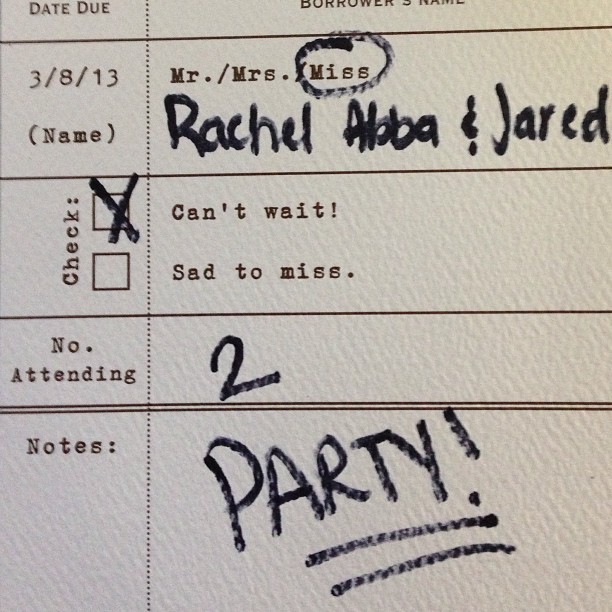 DATE DUE BORROWER'S NAME
3/8/13 Mr./Mrs./Miss
(Name) Rachel Abba & Jared
Check: X Can't wait!
Sad to miss.
No. Attending 2
Notes: PARTY!